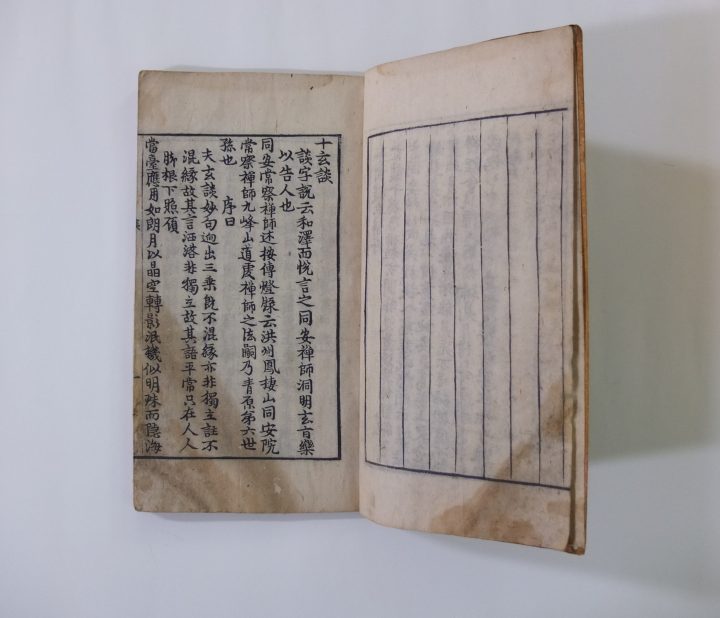 十玄談
談字說云和澤而悅言之同安禪師洞明玄旨樂
以告人也
同安常察禪師述按傳燈錄云洪州鳳棲山同安院
常察禪師九峰山道虔禪師之法嗣乃青原第六世
孫也 序曰
夫玄談妙句逈出三乘旣不混緣亦非獨立註不
混緣故其言洒落非獨立故其語平常只在人人
脚根下照顧
當臺應用如朗月以晶空轉影泯機似明珠而隱海